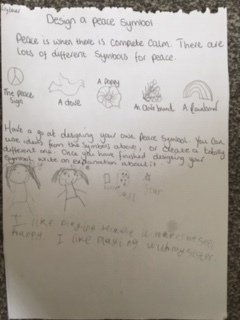 Design a peace Symbol
Peace is when there is complete calm. There are
lots of different Symbols for peace.
The peace
Sign
A dove
A Poppy
An Olive branch
A Rainbow
Have a go at designing your own Peace Symbol. You can
use ideas from the Symbols above, or create a totally
different one. Once you have finished designing your
Symbol write an explanation about it.
Star
I like playing
happy. I like playing with my sister.